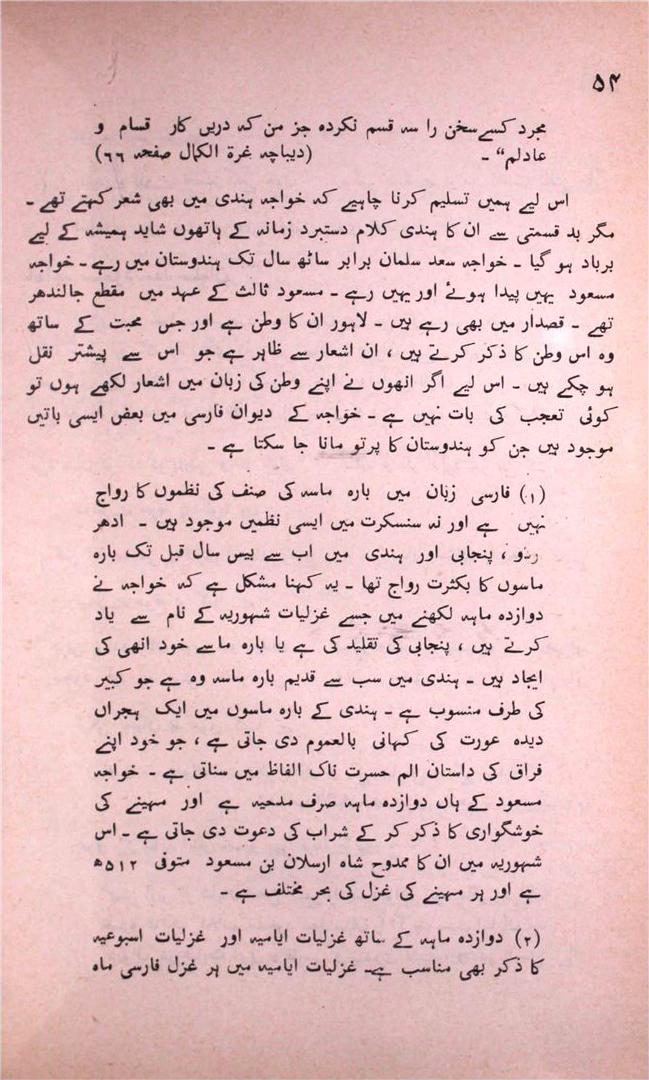 ۵۴
مجرد کسے سخن را سه قسم نکرده جز من که دریں کار قسام و
عادلم“ ۔ (دیباچه غرة الکمال صفحه ٦٦)
اس لیے ہمیں تسلیم کرنا چاہیے که خواجه ہندی میں بھی شعر کہتے تھے ۔
مگر بد قسمتی سے ان کا ہندی کلام دستبرد زمانه کے ہاتھوں شاید ہمیشه کے لیے
برباد ہو گیا ۔ خواجه سعد سلمان برابر ساٹھ سال تک ہندوستان میں رہے ۔ خواجه
مسعود یہیں پیدا ہوئے اور یہیں رہے ۔ مسعود ثالث کے عہد میں مقطع جالندھر
تھے ۔ قصدار میں بھی رہے ہیں ۔ لاہور ان کا وطن ہے اور جس محبت کے ساتھ
وه اس وطن کا ذکر کرتے ہیں ، ان اشعار سے ظاہر ہے جو اس سے پیشتر نقل
ہو چکے ہیں ۔ اس لیے اگر انھوں نے اپنے وطن کی زبان میں اشعار لکھے ہوں تو
کوئی تعجب کی بات نہیں ہے ۔ خواجه کے دیوان فارسی میں بعض ایسی باتیں
موجود ہیں جن کو ہندوستان کا پرتو مانا جا سکتا ہے ۔
(۱) فارسی زبان میں باره ماسه کی صنف کی نظموں کا رواج
نہیں ہے اور نه سنسکرت میں ایسی نظمیں موجود ہیں ۔ ادھر
ردو ، پنجابی اور ہندی میں اب سے بیس سال قبل تک باره
ماسوں کا بکثرت رواج تھا ۔ یه کہنا مشکل ہے که خواجه نے
دوازده ماہه لکھنے میں جسے غزلیات شہوریه کے نام سے یاد
کرتے ہیں ، پنجابی کی تقلید کی ہے یا باره ماسے خود انھی کی
ایجاد ہیں ۔ ہندی میں سب سے قدیم باره ماسه وه ہے جو کبیر
کی طرف منسوب ہے ۔ ہندی کے باره ماسوں میں ایک ہجراں
دیده عورت کی کہانی بالعموم دی جاتی ہے ، جو خود اپنے
فراق کی داستان الم حسرت ناک الفاظ میں سناتی ہے ۔ خواجه
مسعود کے ہاں دوازده ماہه صرف مدحیه ہے اور مہینے کی
خوشگواری کا ذکر کر کے شراب کی دعوت دی جاتی ہے ۔ اس
شہوریه میں ان کا ممدوح شاه ارسلان بن مسعود متوفی ۵۱۲ھ
ہے اور ہر مہینے کی غزل کی بحر مختلف ہے ۔
(۲) دوازده ماہه کے ساتھ غزلیات ایامیه اور غزلیات اسبوعیه
کا ذکر بھی مناسب ہے۔ غزلیات ایامیه میں ہر غزل فارسی ماه